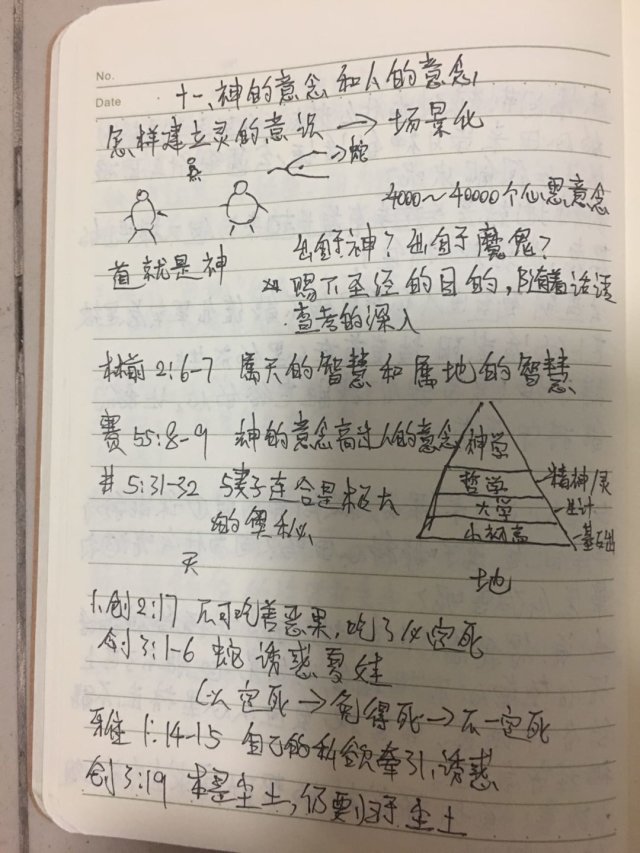 No.
Date
十一、神的意念和人的意念
怎样建立灵的意识 → 场景化
→蛇
4000~40000个 意念
出自于神？出自于魔鬼？
道就是神
赐下圣经的目的，随着话语
查考的深入
林前2:6-7 属天的智慧和属地的智慧
赛55:8-9 神的意念高过人的意念
弗5:31-32 与妻子连合是极大
的奥秘
神学
哲学
大学
小初高
精神/灵
生计
基础
地
天
1、创2:17 不可吃善恶果，吃了必定死
创3:1-6 蛇诱惑夏娃
(必定死→免得死→不一定死
雅1:14-15 自己的私欲牵引、诱惑
创3:19 本是尘土，仍要归于尘土